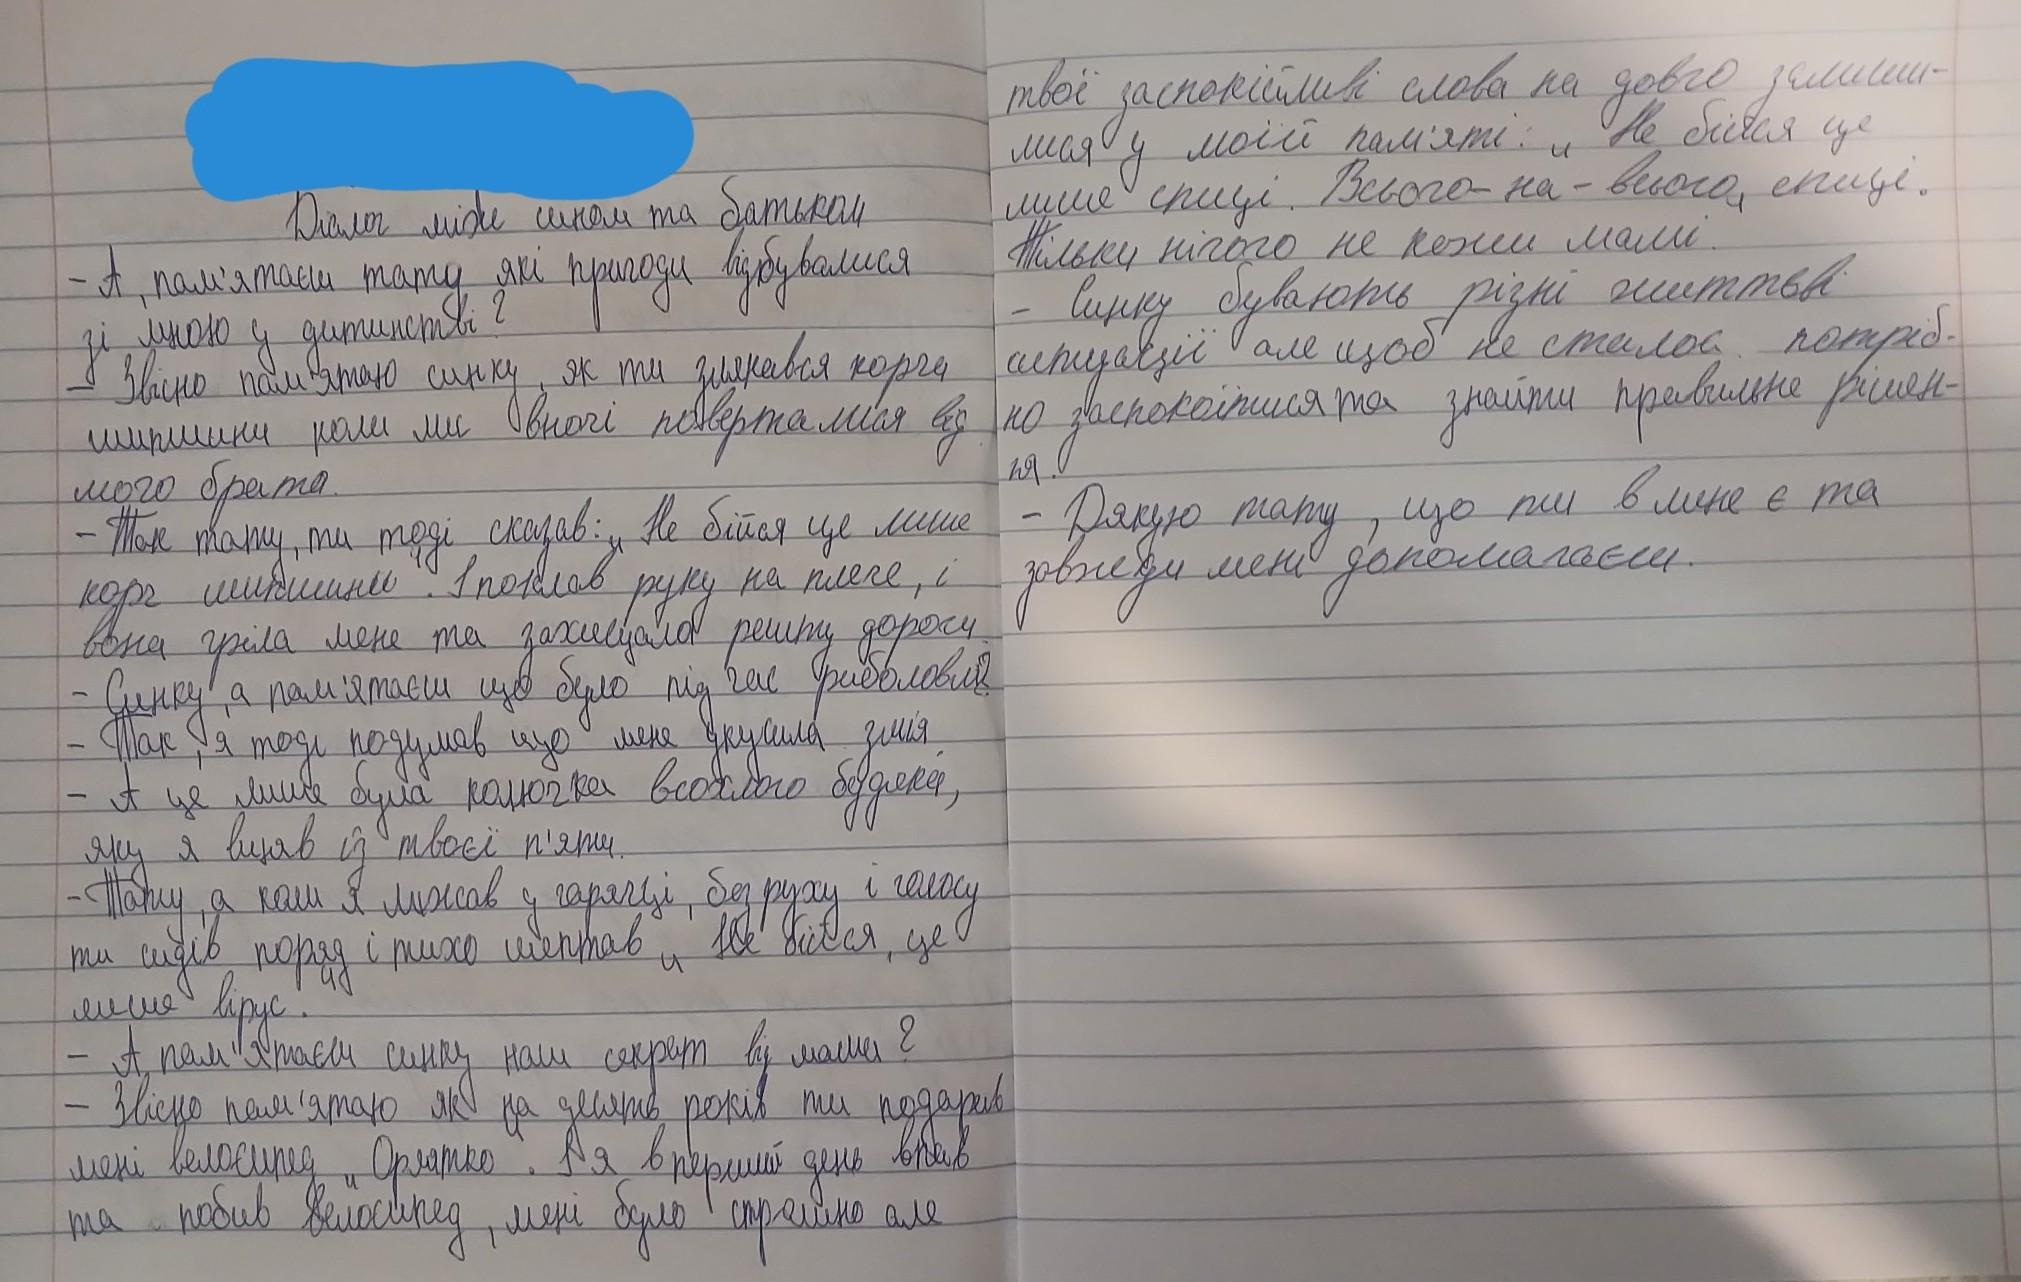 Діалог між сином та батьком
- А, пам'ятаєш тату які пригоди відбувалися
зі мною у дитинстві?
- Звісно пам'ятаю синку, як ти злякався корча
шипшини коли ми вночі поверталися від
мого брата.
- Так тату, ти тоді сказав: „ Не бійся це лише
корч шипшини". І поклав руку на плече, і
вона гріла мене та захищала решту дороги.
- Синку, а пам'ятаєш що було під час риболовлі?
- Так, я тоді подумав що мене укусила змія.
- А це лише була колючка всохлого будяка,
яку я виняв із твоєї п'яти.
- Тату, а коли я лижав у гарячці, без руху і голосу
ти сидів поряд і тихо шептав „ Не бійся, це
лише вірус."
- А, пам'ятаєш синку наш секрет від мами?
- Звісно пам'ятаю як на десять років ти подарив
мені велосипед „ Орлятко". А я в перший день впав
та побив велосипед, мені було страшно але
твої заспокійливі слова на довго залиши-
лися у моїй пам'яті: „ Не бійся це
лише спиці. Всього-на-всього, спиці.
Тільки нічого не кажи мамі.
- Синку бувають різні життєві
ситуації але щоб не сталос потріб-
но заспокоїтися та знайти правильне рішен-
ня.
- Дякую тату, що ти в мене є та
завжеди мені допомагаєш.